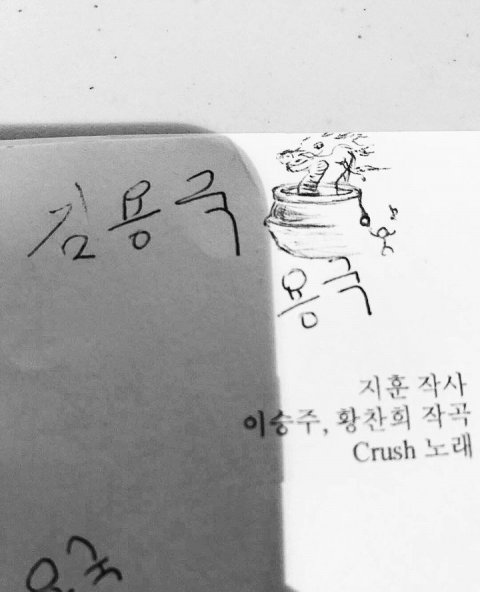 김용국
용국
지훈 작사
이승주, 황찬희 작곡
Crush 노래
용국